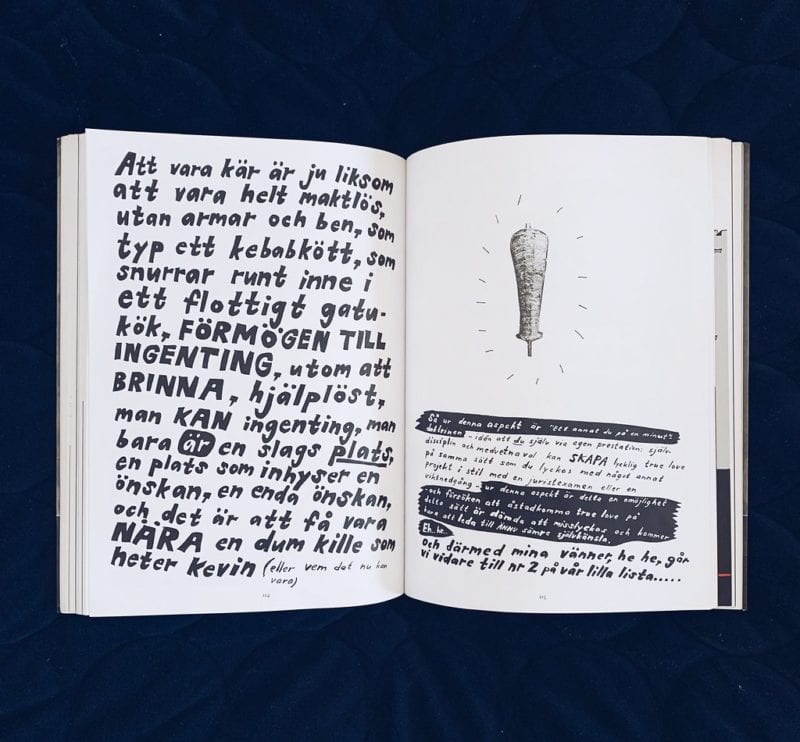 Att vara kär är ju liksom
att vara helt maktlös,
utan armar och ben, som
typ ett kebabkött, som
snurrar runt inne i
ett flottigt gatu-
kök, FÖRMÖGEN TILL
INGENTING, utom att
BRINNA, hjälplöst,
man KAN ingenting, man
bara är en slags plats,
en plats som inhyser en
önskan, en enda önskan,
och det är att få vara
NÄRA en dum kille som
heter Kevin (eller vem det nu kan
vara)
114
Så ur denna aspekt är "Ett annat du på en minut"-
doktrinen - idén att du själv via egen prestation, själv-
disciplin och medvetna val kan SKAPA lycklig true love
på samma sätt som du lyckas med något annat
projekt i stil med en juristexamen eller en
viktnedgång - ur denna aspekt är detta en omöjlighet
och försöken att åstadkomma true love på
detta sätt är dömda att misslyckas och kommer
bara att leda till ÄNNU sämre självkänsla.
Eh. he.
och därmed mina vänner, he he, går
vi vidare till nr 2 på vår lilla lista.....
115